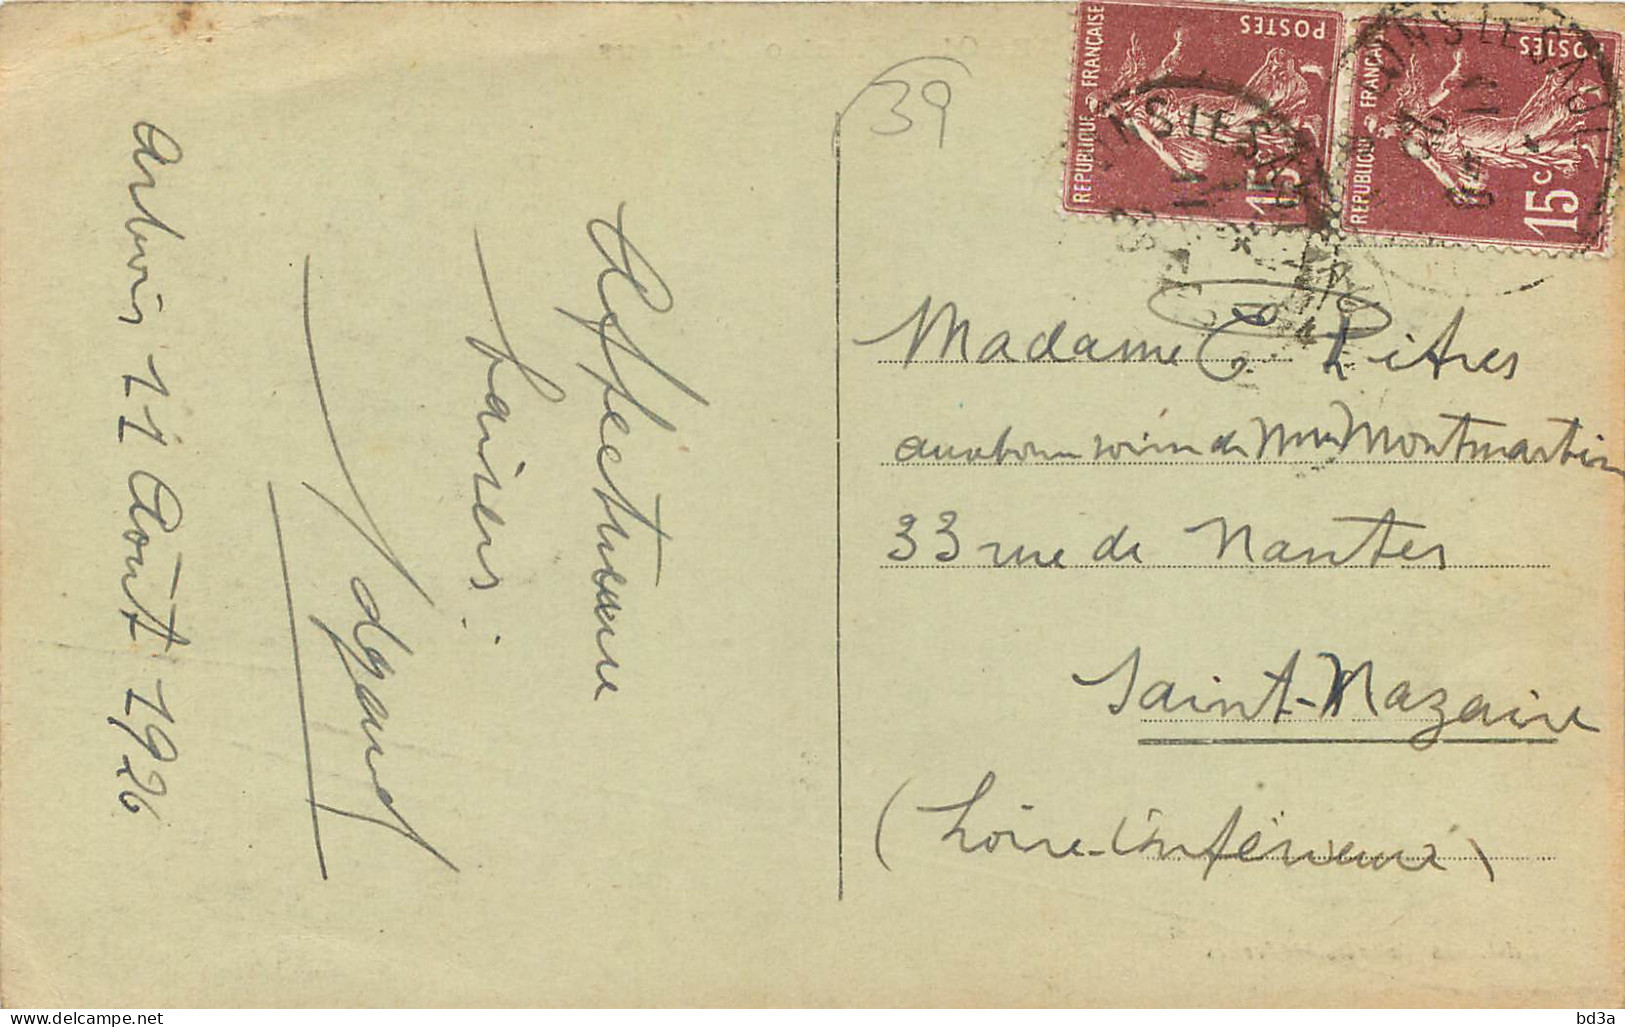 Arbois 11 Août 1926
Affectueux
baisers.
39
REPUBLIQUE FRANÇAISE
POSTES
15
REPUBLIQUE FRANÇAISE
POSTES
15c
ONS LE SAU
11
ONS LE SAU
11
Madame C.
aux bons soins de Mme Montmartin
33 rue de Nantes
Saint-Nazaire
(Loire-Inférieure)
delcampe.net
bd3a